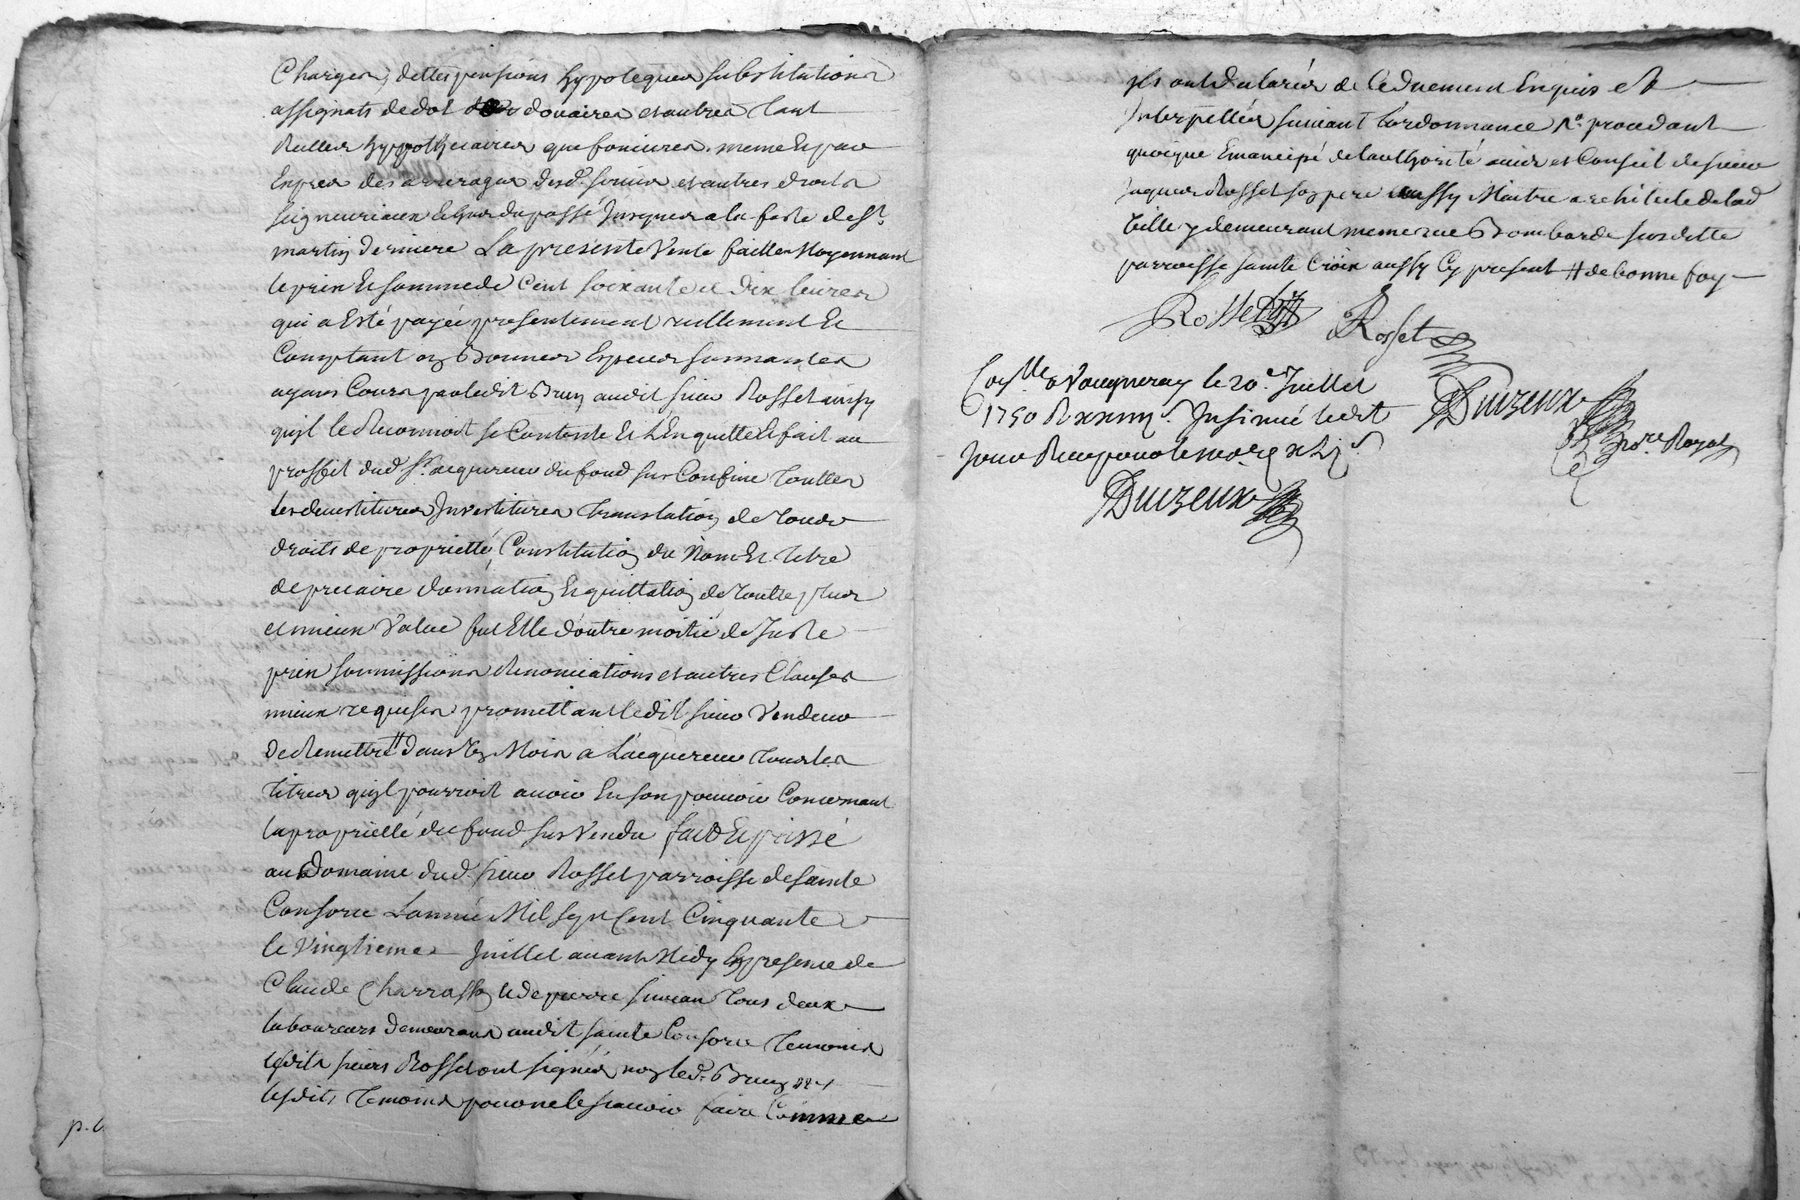 Charges, dettes pensions hypoteques substitutions
assignats de dot douaires et autres tant
reelles hypothecaires que foncieres. meme En par
Expres des arrerages desd. servis et autres droits
seigneuriaux Echus du passé Jusques a la feste de St.
martin derniere La presente Vente faitte Moyennant
le prix Et somme de Cent soixante et dix livres
qui a Esté payée presentement reellement Et
Comptant en Bonnes Especes sonnantes
ayans Cours par ledit Brun audit sieur Rosset ainsy
quil le Reconnoit se Contente Et L'En quitte Et fait au
proffit dud. Sr. acquereur du fond sus Confiné Touttes
les devestitures Investitures Translation de Tous
droits de proprietté, Constitution du Nom Et titre
de precaire donnation Et quittation de Toutte plus
et mieux Value fut Elle d'outre moitié de Juste
prix soumissions Renonciations et autres Clauses
mieux requises promettant ledit sieur Vendeur
de Remettre # dans Un Mois a L'acquereur Tous les
titres quil pourroit avoir En son pouvoir Concernant
la proprietté du fond sus Vendu fait Et passé
au Domaine dud. sieur Rosset parroisse de sainte
Consorce L'année Mil sept Cent Cinquante
le Vingtieme Juillet avant Midy En presence de
Claude Charrasson et de pierre simean Tous deux
laboureurs demeurans audit sainte Consorce Temoins
lesdits sieurs Rosset ont signés non led. Brun ny
lesdits Temoins pour ne le scavoir faire Comme
p. c.
Ils ont declarés de Ce duement Enquis et
Interpellés suivant l'ordonnance procedant
quoique Emancipé de l'authorité avis et Conseil de sieur
Jaques Rosset son pere aussy Maitre architecte de lad
Ville y demeurant meme rue Bombarde susditte
parroisse sainte Croix aussy Cy present # de bonne foy
Rosset Rosset
Con.lle a Vaugneray le 20.e Juillet
1750 R Insinué ledit
Jour Reçu pour le tout
Duizeux
Duizeux
No.re Royal